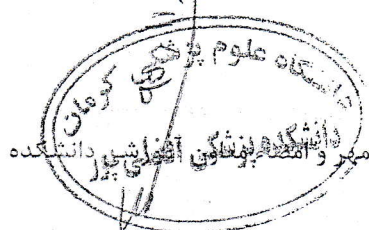 دانشگاه علوم پزشکی کرمان
دانشکده پزشکی افضلی پور
مهر و امضاء معاون آموزشی دانشکده